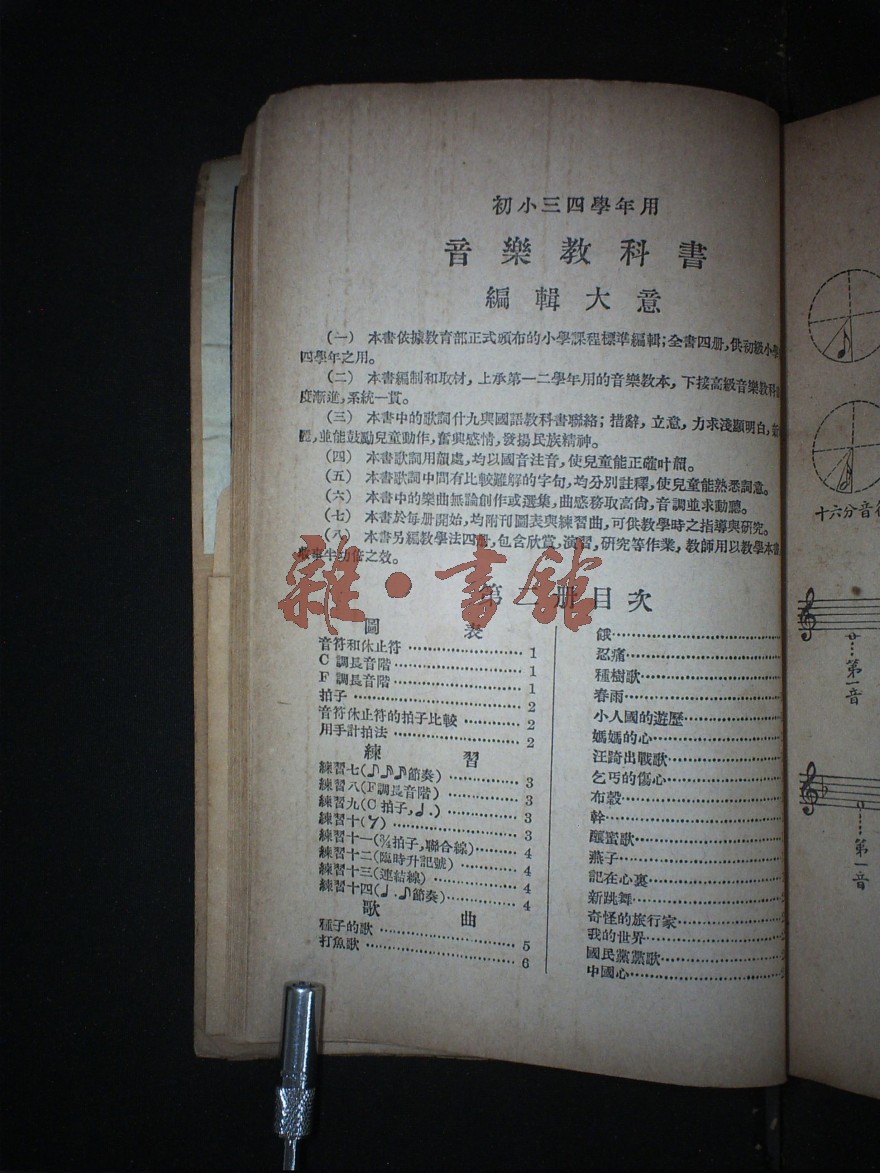 初小三四學年用
音樂教科書
編輯大意
(一) 本書依據教育部正式頒布的小學課程標準編輯;全書四册,供初級小學
四學年之用。
(二) 本書編制和取材,上承第一二學年用的音樂教本,下接高級音樂教科
度漸進,系統一貫。
(三) 本書中的歌詞什九與國語教科書聯絡;措辭,立意,力求淺顯明白,
,並能鼓勵兒童動作,奮興感情,發揚民族精神。
(四) 本書歌詞用韻處,均以國音注音,使兒童能正確叶韻。
(五) 本書歌詞中間有比較難解的字句,均分別註釋,使兒童能熟悉詞意。
(六) 本書中的樂曲無論創作或選集,曲感務取高尙,音調並求動聽。
(七) 本書於每册開始,均附刊圖表與練習曲,可供教學時之指導與研究。
(八) 本書另編教學法四册,包含欣賞,演習,研究等作業,教師用以教學本書
收事半功倍之效。
雜·書館
第二册目次
圖表
音符和休止符 1
C 調長音階 1
F 調長音階 1
拍子 2
音符休止符的拍子比較 2
用手計拍法 2
練習
練習七(♪♪♪節奏) 3
練習八(F調長音階) 3
練習九(C拍子,♩.) 3
練習十(7) 3
練習十一(¾拍子,聯合線) 4
練習十二(臨時升記號) 4
練習十三(連結線) 4
練習十四(♩.♪節奏) 4
歌曲
種子的歌 5
打魚歌 6
餓
忍痛
種樹歌
春雨
小人國的遊歷
媽媽的心
汪踦出戰歌
乞丐的傷心
布穀
幹
釀蜜歌
燕子
記在心裏
新跳舞
奇怪的旅行家
我的世界
國民黨黨歌
中國心
十六分音符
第一音
第一音